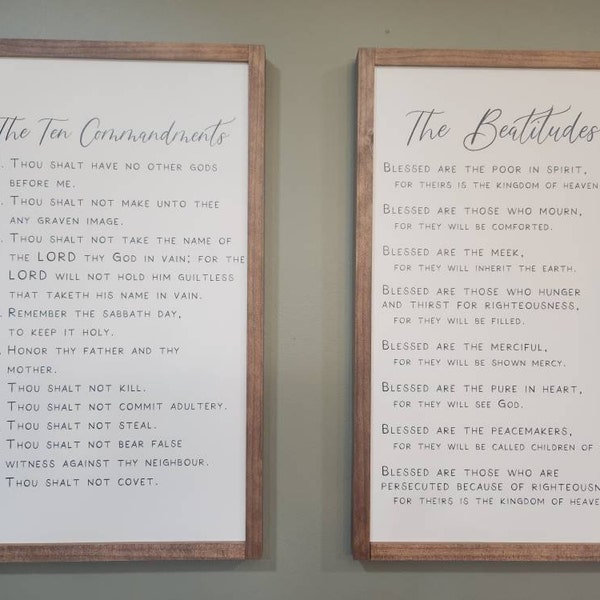 The Ten Commandments
. Thou shalt have no other gods
before me.
. Thou shalt not make unto thee
any graven image.
. Thou shalt not take the name of
the LORD thy God in vain; for the
LORD will not hold him guiltless
that taketh his name in vain.
. Remember the sabbath day,
to keep it holy.
. Honor thy father and thy
mother.
Thou shalt not kill.
Thou shalt not commit adultery.
Thou shalt not steal.
Thou shalt not bear false
witness against thy neighbour.
Thou shalt not covet.
The Beatitudes
Blessed are the poor in spirit,
for theirs is the kingdom of heaven
Blessed are those who mourn,
for they will be comforted.
Blessed are the meek,
for they will inherit the earth.
Blessed are those who hunger
and thirst for righteousness,
for they will be filled.
Blessed are the merciful,
for they will be shown mercy.
Blessed are the pure in heart,
for they will see God.
Blessed are the peacemakers,
for they will be called children of
Blessed are those who are
persecuted because of righteousn
for theirs is the kingdom of heave